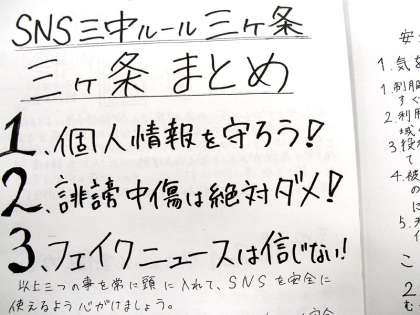 SNS三中ルール三ヶ条
三ヶ条まとめ
1、個人情報を守ろう!
2、誹謗中傷は絶対ダメ!
3、フェイクニュースは信じない!
以上三つの事を常に頭に入れて、SNSを安全に
使えるよう心がけましょう。
安
1.気を
1.制服
すぐ
2.利用
3.投
て
4.被
の
に
5.
こ
2
む